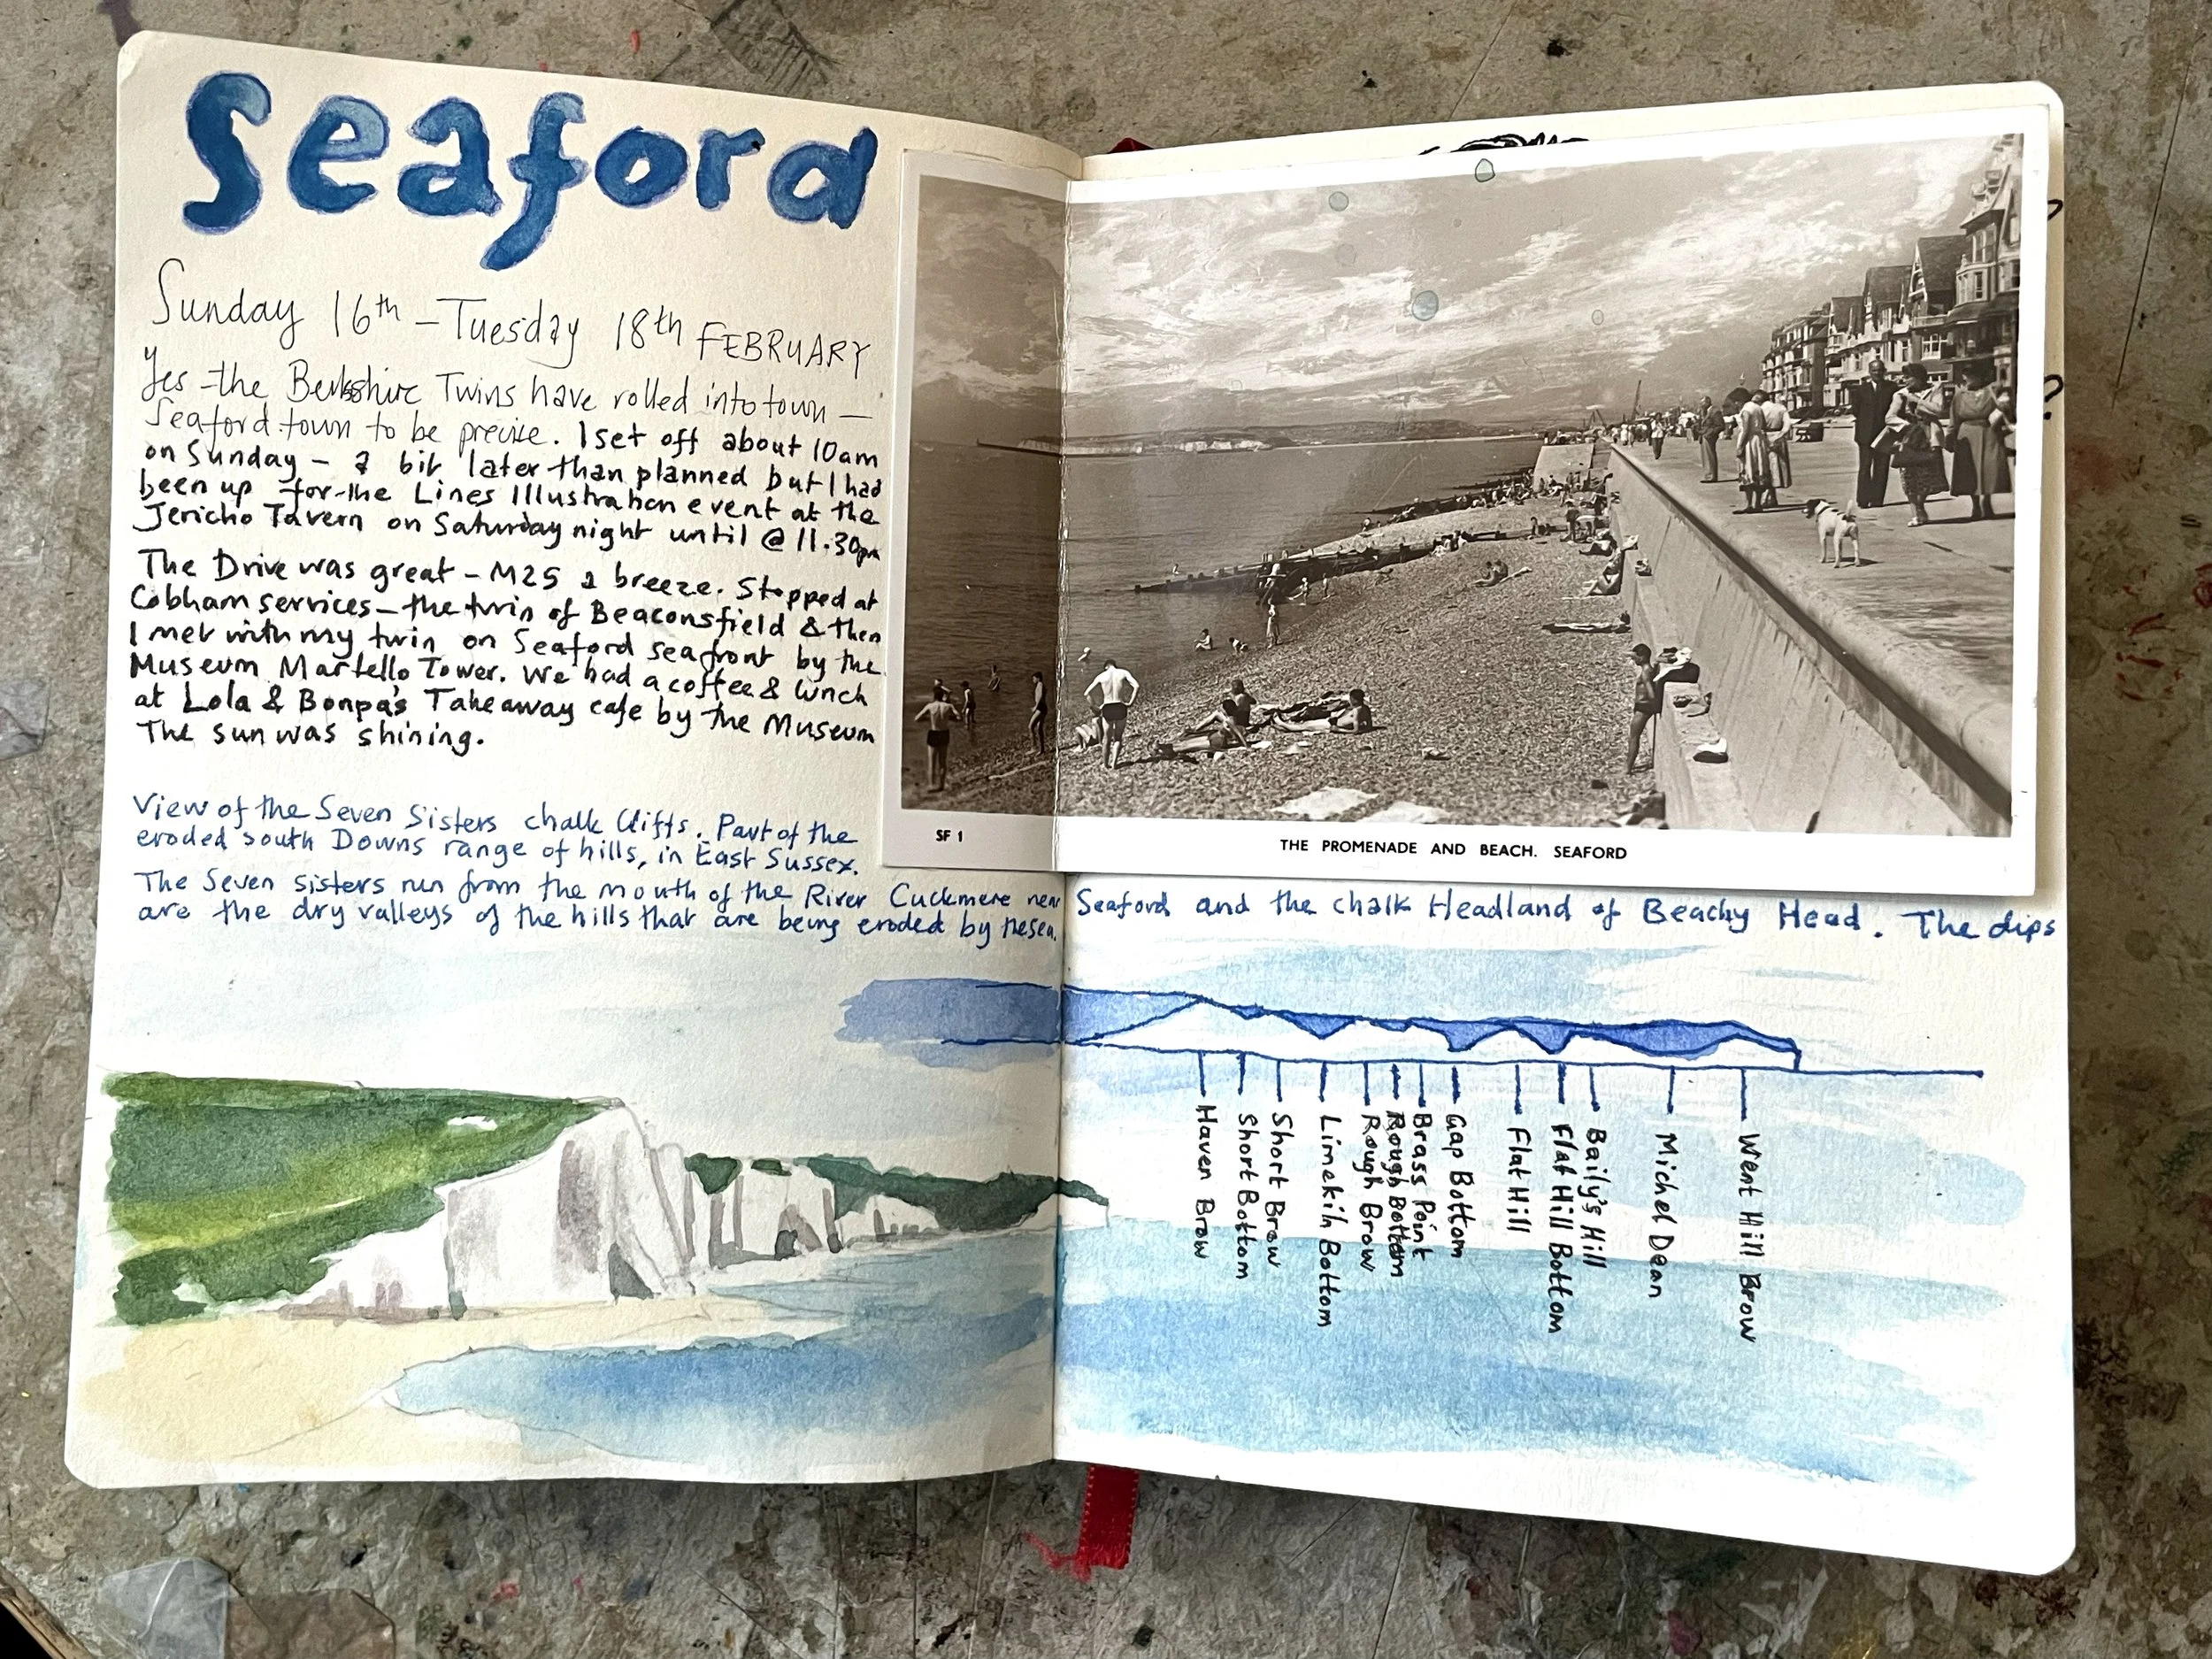 Seaford
Sunday 16th - Tuesday 18th FEBRUARY
Yes - the Berkshire Twins have rolled into town -
Seaford town to be precise. I set off about 10am
on Sunday - a bit later than planned but I had
been up for the Lines Illustration event at the
Jericho Tavern on Saturday night until @ 11.30pm
The Drive was great - M25 a breeze. Stopped at
Cobham services - the twin of Beaconsfield & then
I met with my twin on Seaford seafront by the
Museum Martello Tower. We had a coffee & lunch
at Lola & Bonpa's Takeaway cafe by the Museum
The sun was shining.
SF 1
THE PROMENADE AND BEACH. SEAFORD
View of the Seven Sisters chalk Cliffs. Part of the
eroded South Downs range of hills, in East Sussex.
The Seven sisters run from the mouth of the River Cuckmere near Seaford and the chalk Headland of Beachy Head. The dips
are the dry valleys of the hills that are being eroded by the sea.
Haven Brow
Short Bottom
Short Brow
Limekiln Bottom
Rough Brow
Rough Bottom
Brass Point
Gap Bottom
Flat Hill
Flat Hill Bottom
Baily's Hill
Michel Dean
Went Hill Brow
?
?